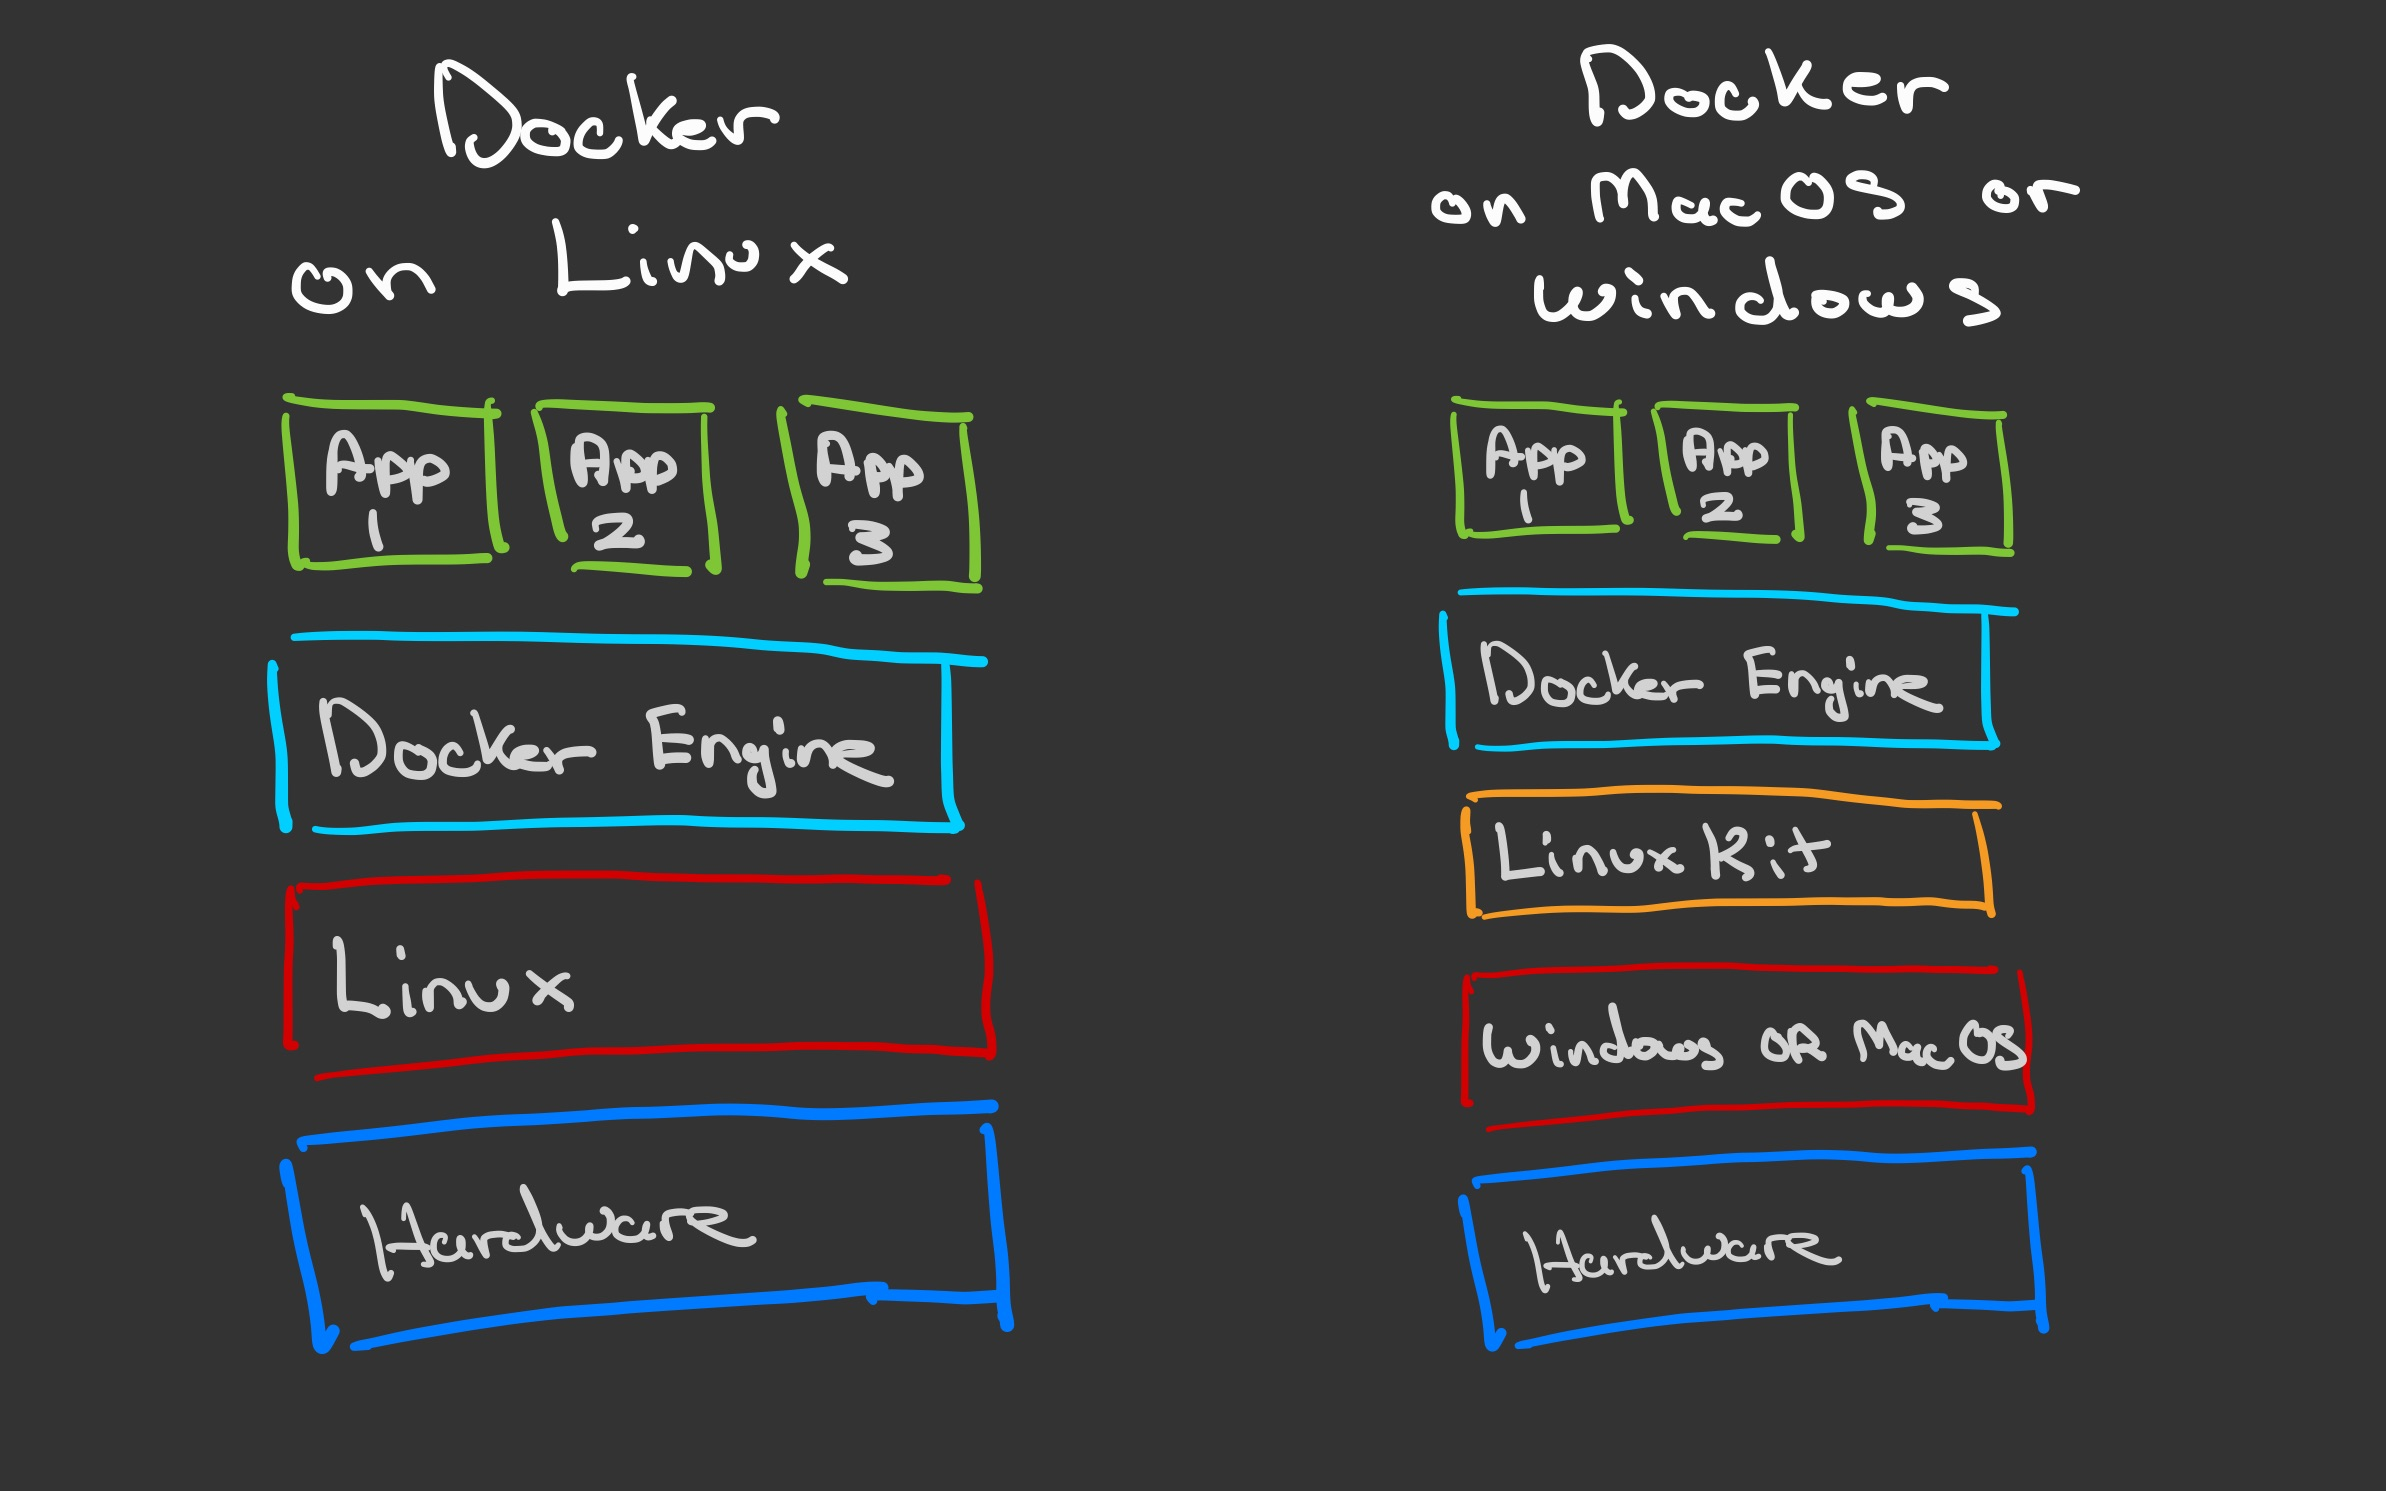 Docker
on Linux
App
1
App
2
App
3
Docker Engine
Linux
Hardware
Docker
on MacOS or
Windows
App
1
App
2
App
3
Docker Engine
LinuxKit
Windows OR MacOS
Hardware